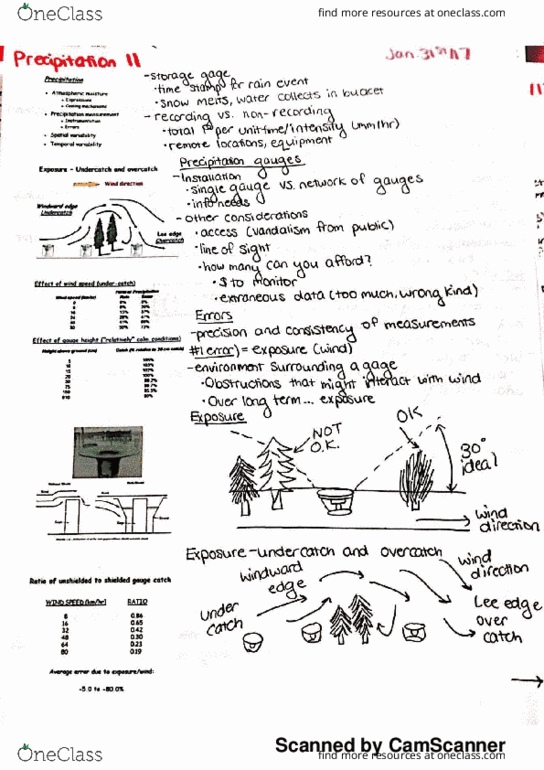 OneClass
find more resources at oneclass.com
Precipitation 11
Jan. 31st 17
Precipitation
• Atmospheric moisture
• Expressions
• Precipitation measurement
• Instrumentation
• Errors
• Spatial variability
• Temporal variability
-storage gage
• time stamp for rain event
• snow melts, water collects in bucket
- recording vs. non-recording
• total P per unit time/intensity (mm/hr)
• remote locations, equipment
Precipitation gauges
-Installation
• single gauge vs. network of gauges
• info needs
- other considerations
• access (vandalism from public)
• line of sight
• how many can you afford?
• $ to monitor
• extraneous data (too much, wrong kind)
Errors
-precision and consistency of measurements
#1 error) = exposure (wind)
-environment surrounding a gage
• Obstructions that might interact with wind
• Over long term... exposure
Exposure
NOT O.K.
OK
30° ideal
wind direction
Exposure - Undercatch and overcatch
Wind direction
Windward edge
Undercatch
Lee edge
Overcatch
Effect of wind speed (under-catch)
Effect of gauge height ("relatively" calm conditions)
Exposure-undercatch and overcatch
wind direction
windward edge
under catch
Lee edge over catch
Ratio of unshielded to shielded gauge catch
WIND SPEED (km/hr) RATIO
8 0.86
16 0.65
32 0.42
48 0.30
64 0.23
80 0.19
Average error due to exposure/wind:
-5.0 to -80.0%
Scanned by CamScanner
OneClass
find more resources at oneclass.com